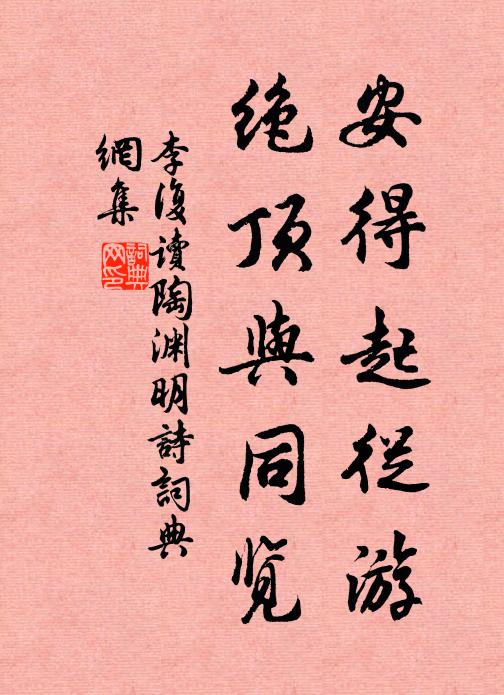 安得起從游
绝顶與同览
李復讀陶渊明詩詞典
網集
詞典
网印